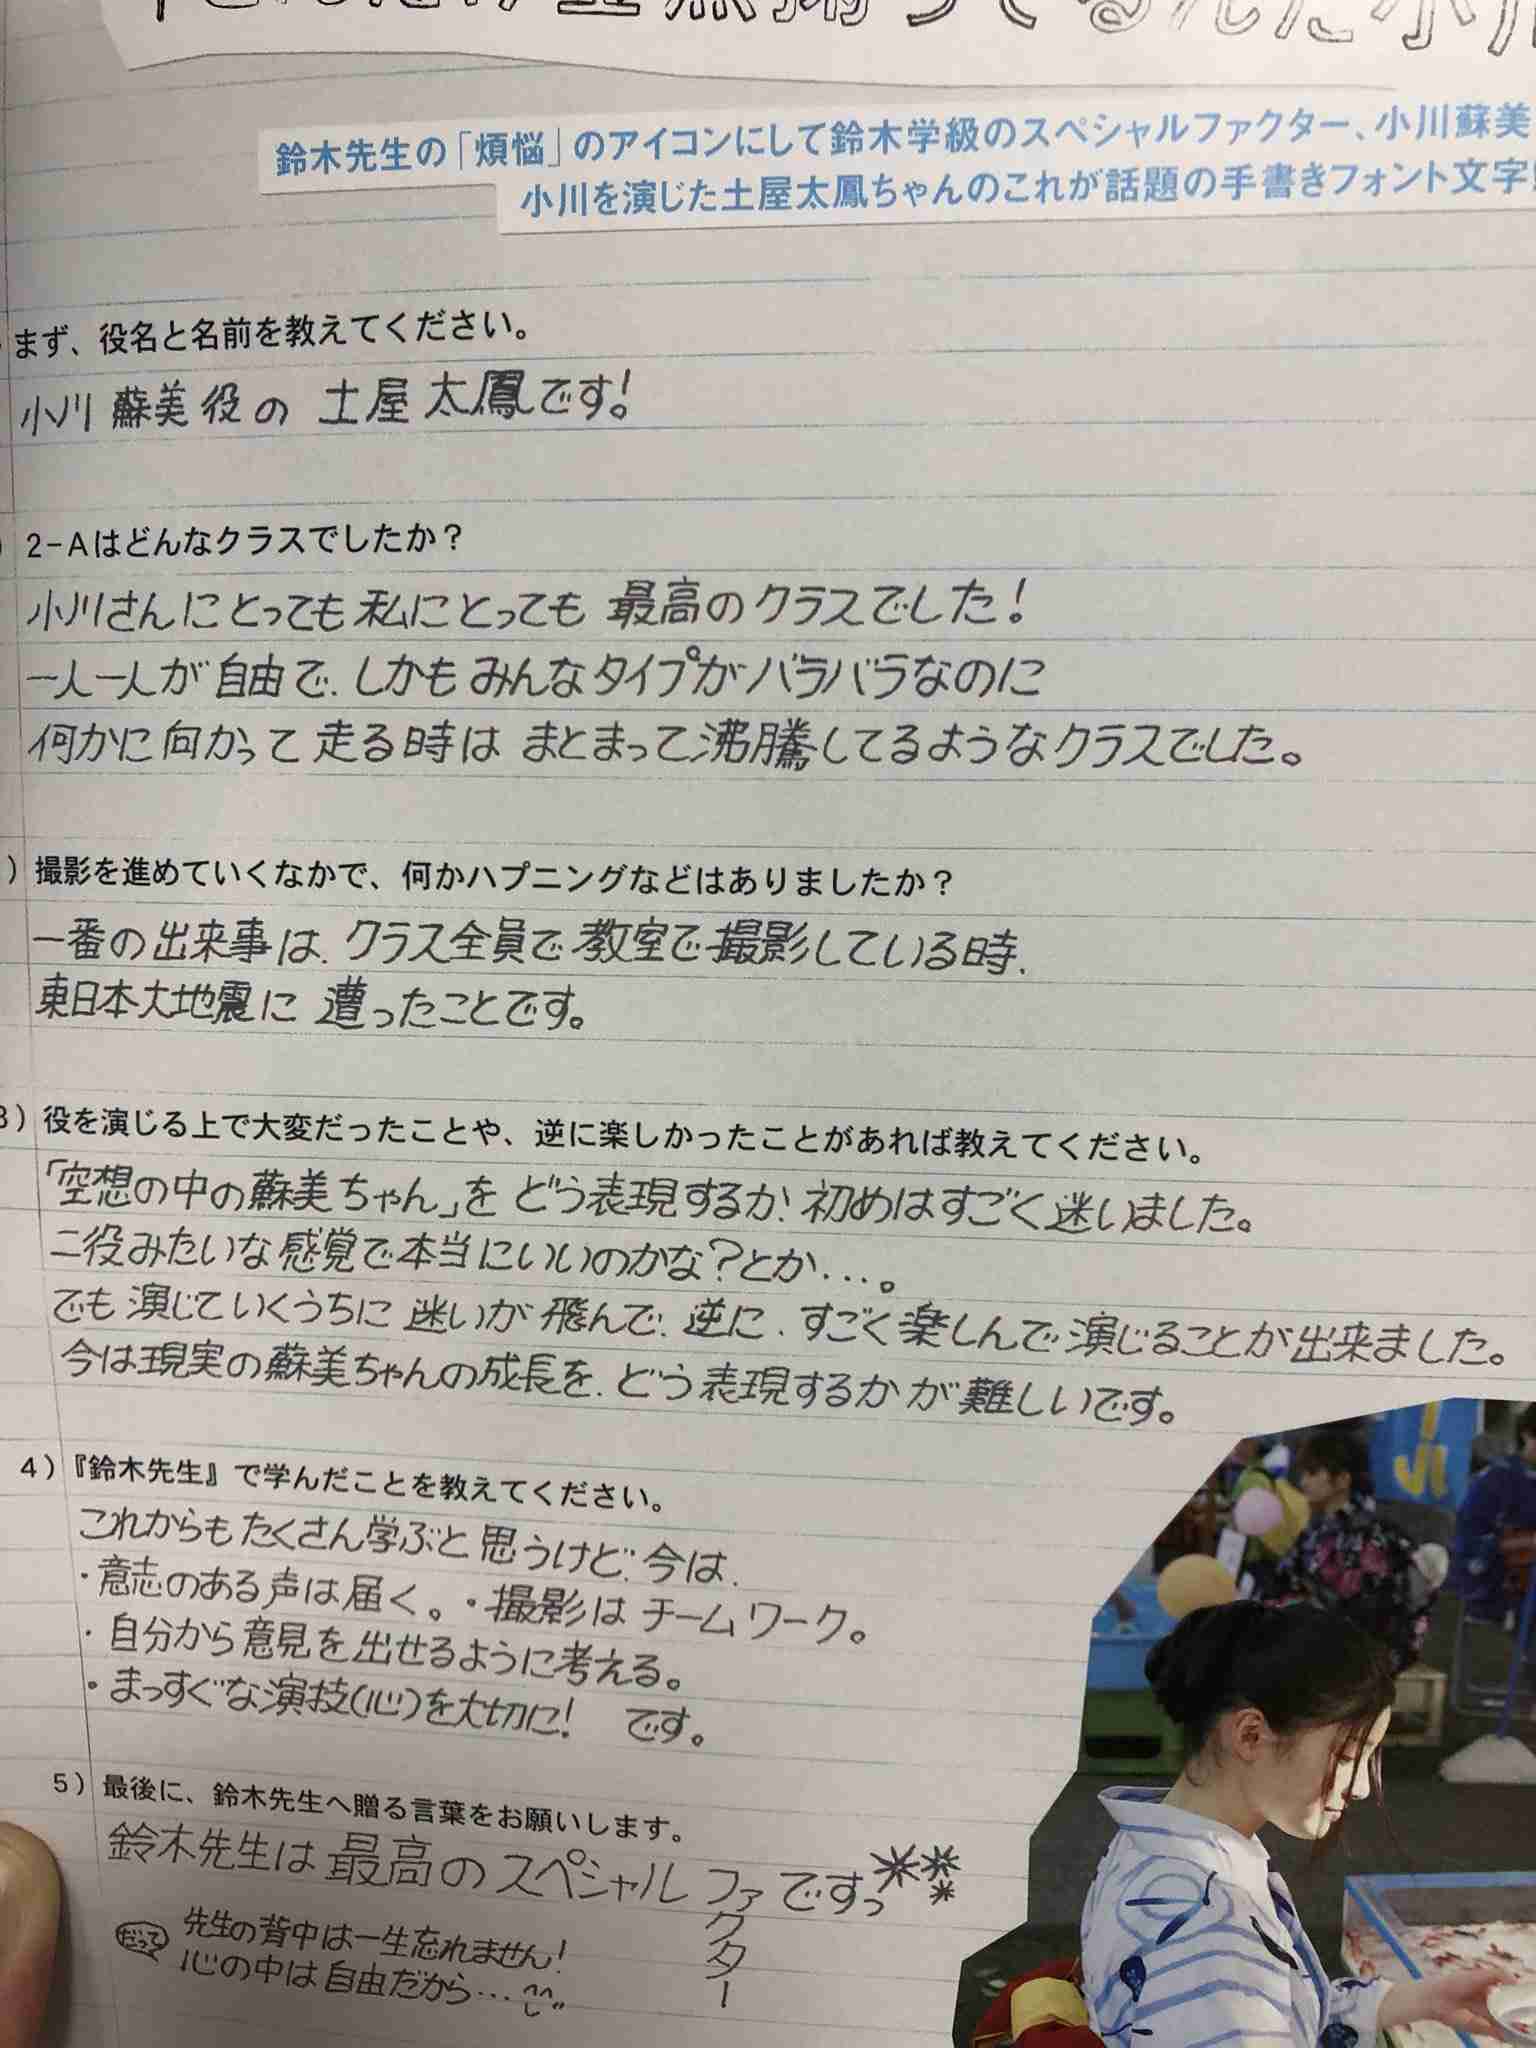 鈴木先生の「煩悩」のアイコンにして鈴木学級のスペシャルファクター、小川蘇美
小川を演じた土屋太鳳ちゃんのこれが話題の手書きフォント文字!
まず、役名と名前を教えてください。
小川 蘇美 役の 土屋 太鳳です!
2-Aはどんなクラスでしたか？
小川さんにとっても 私にとっても 最高のクラスでした！
一人一人が自由で、しかもみんなタイプがバラバラなのに
何かに向かって走る時は まとまって沸騰してるようなクラスでした。
) 撮影を進めていくなかで、何かハプニングなどはありましたか？
一番の出来事は、クラス全員で教室で撮影している時、
東日本大地震に 遭ったことです。
3) 役を演じる上で大変だったことや、逆に楽しかったことがあれば教えてください。
「空想の中の蘇美ちゃん」を どう表現するか、初めはすごく迷いました。
二役みたいな感覚で本当にいいのかな?とか…。
でも演じていくうちに 迷いが飛んで、逆に、すごく楽しんで演じることが出来ました。
今は現実の蘇美ちゃんの成長を、どう表現するかが難しいです。
4)『鈴木先生』で学んだことを教えてください。
これからもたくさん学ぶと思うけど、今は、
・意志のある声は届く。・撮影はチームワーク。
・自分から意見を出せるように考える。
・まっすぐな演技(心)を大切に! です。
5) 最後に、鈴木先生へ贈る言葉をお願いします。
鈴木先生は最高のスペシャルファクターですっ
だって 先生の背中は一生忘れません!
心の中は自由だから…